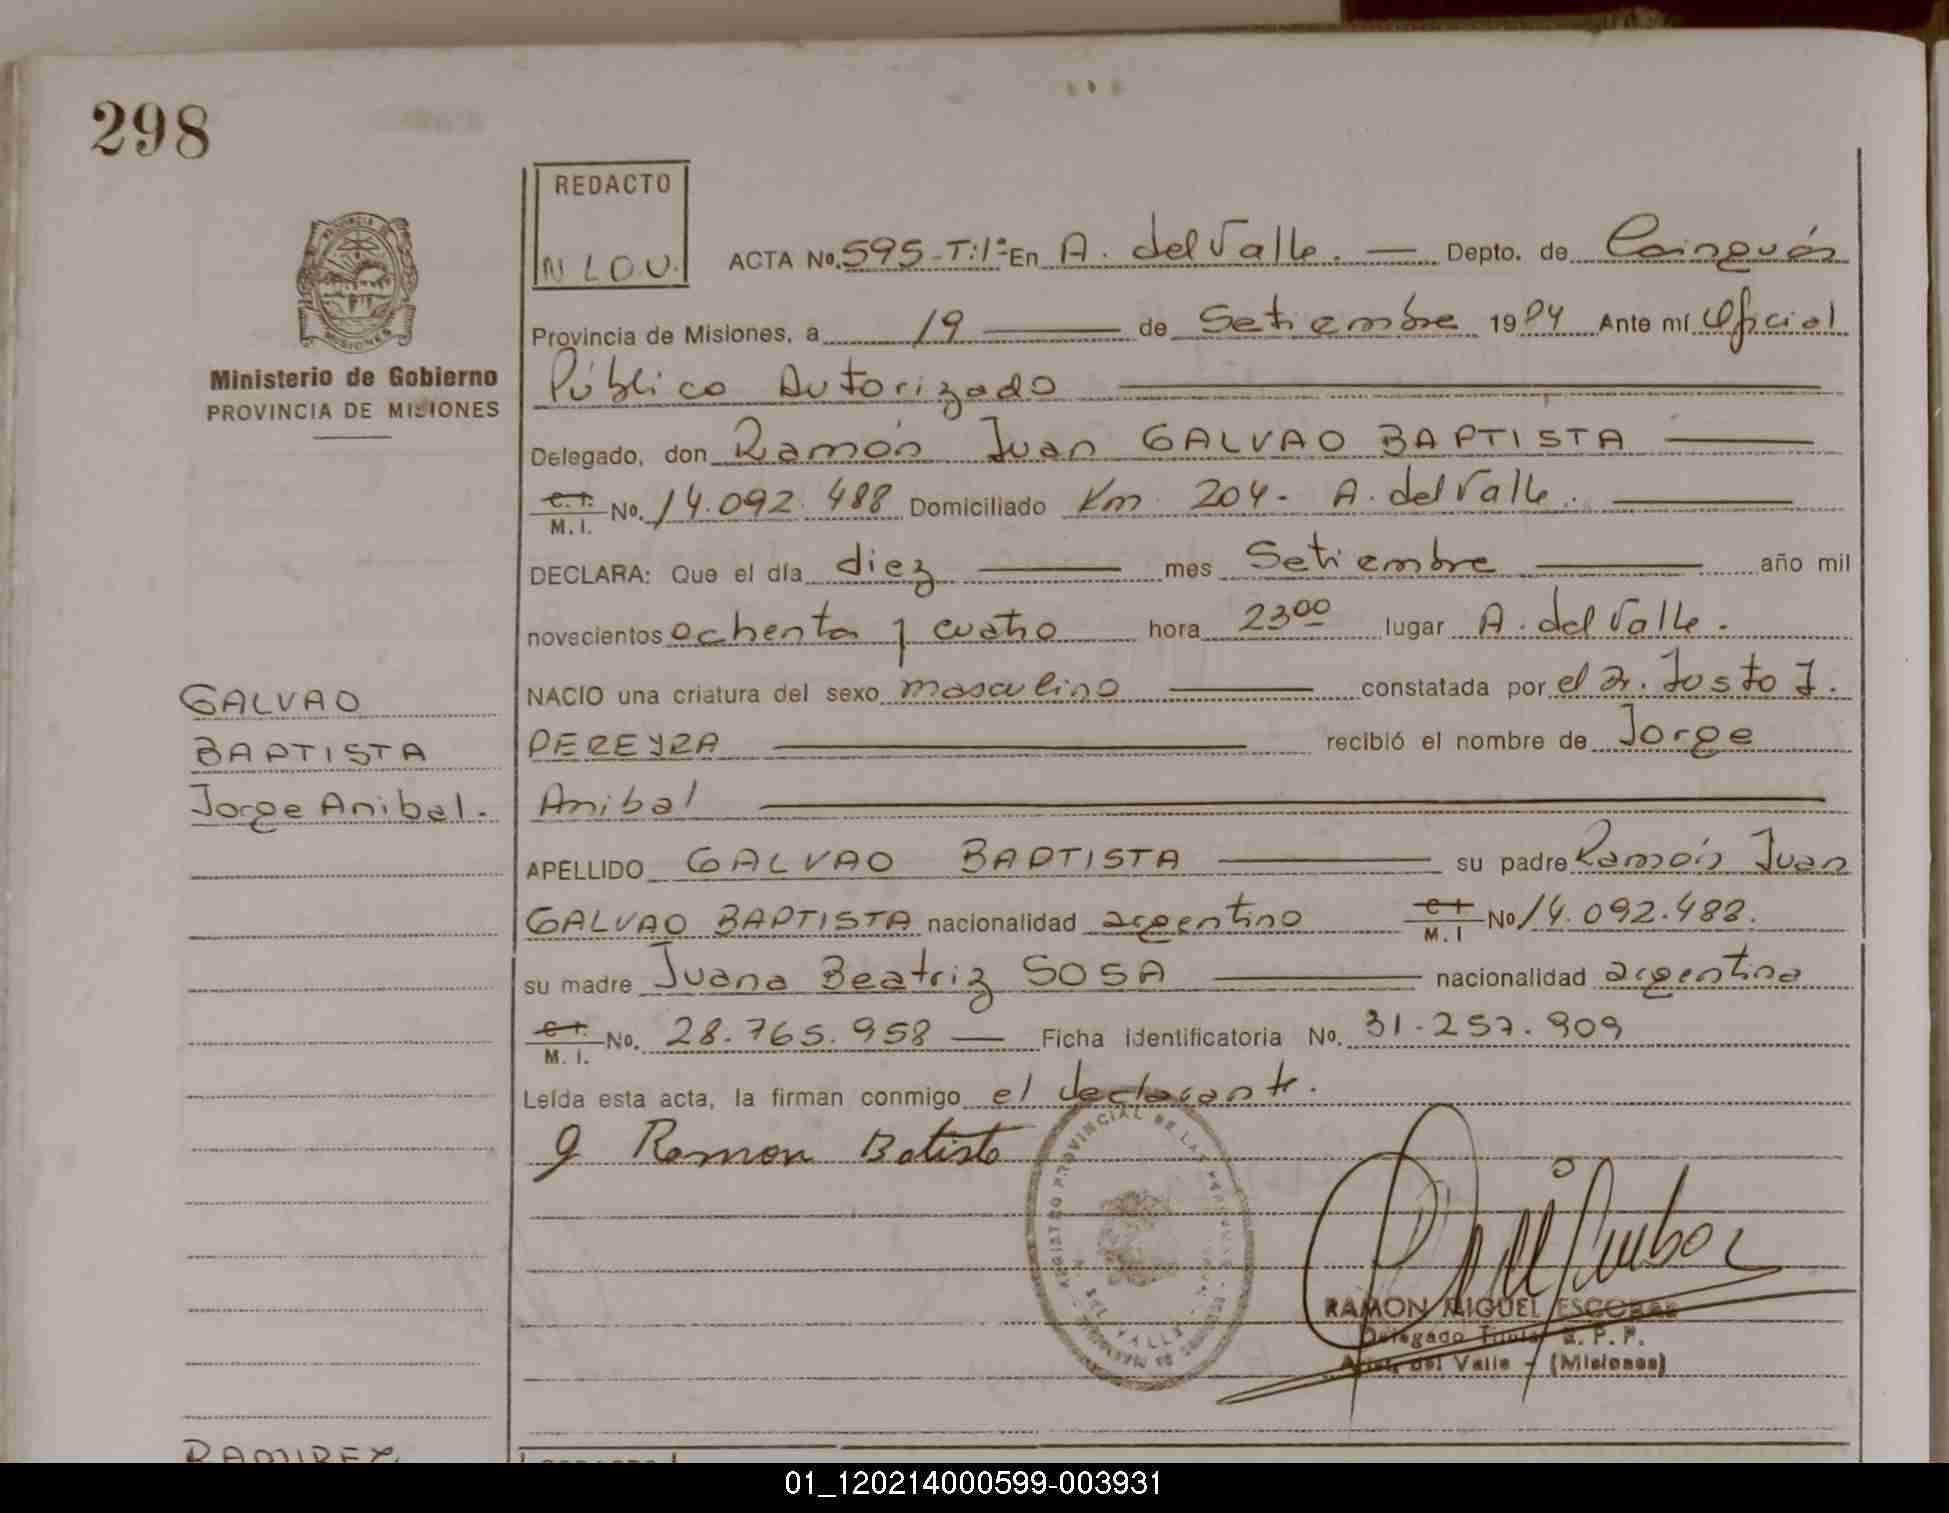 298
REDACTO
N L O V.
PROVINCIA DE
MISIONES
Ministerio de Gobierno
PROVINCIA DE MISIONES
ACTA No. 595-T:1º En A. del Valle. — Depto. de Cainguás
Provincia de Misiones, a 19 — de Setiembre 1984 Ante mí Oficial
Público Autorizado
Delegado, don Ramón Juan GALVAO BAPTISTA
C. I. M. I. No. 14.092.488 Domiciliado Km 204- A. del Valle.
DECLARA: Que el día diez — mes Setiembre — año mil
novecientos ochenta y cuatro hora 23⁰⁰ lugar A. del Valle.
GALVAO
BAPTISTA
Jorge Anibal.
NACIO una criatura del sexo masculino — constatada por el Dr. Justo J.
PEREYRA — recibió el nombre de Jorge
Anibal
APELLIDO GALVAO BAPTISTA — su padre Ramón Juan
GALVAO BAPTISTA nacionalidad argentino C I M. I No 14.092.488.
su madre Juana Beatriz SOSA — nacionalidad argentina
C I. M. I. No. 28.765.958 — Ficha identificatoria No. 31.257.909
Leída esta acta, la firman conmigo el declarante.
Ramon Batista
REGISTRO PROVINCIAL DE LAS PERSONAS
DEL VALLE
RAMON MIGUEL ESCOBAR
Delegado Titular R. P. P.
Arist. del Valle - (Misiones)
RAMIREZ
01_120214000599-003931